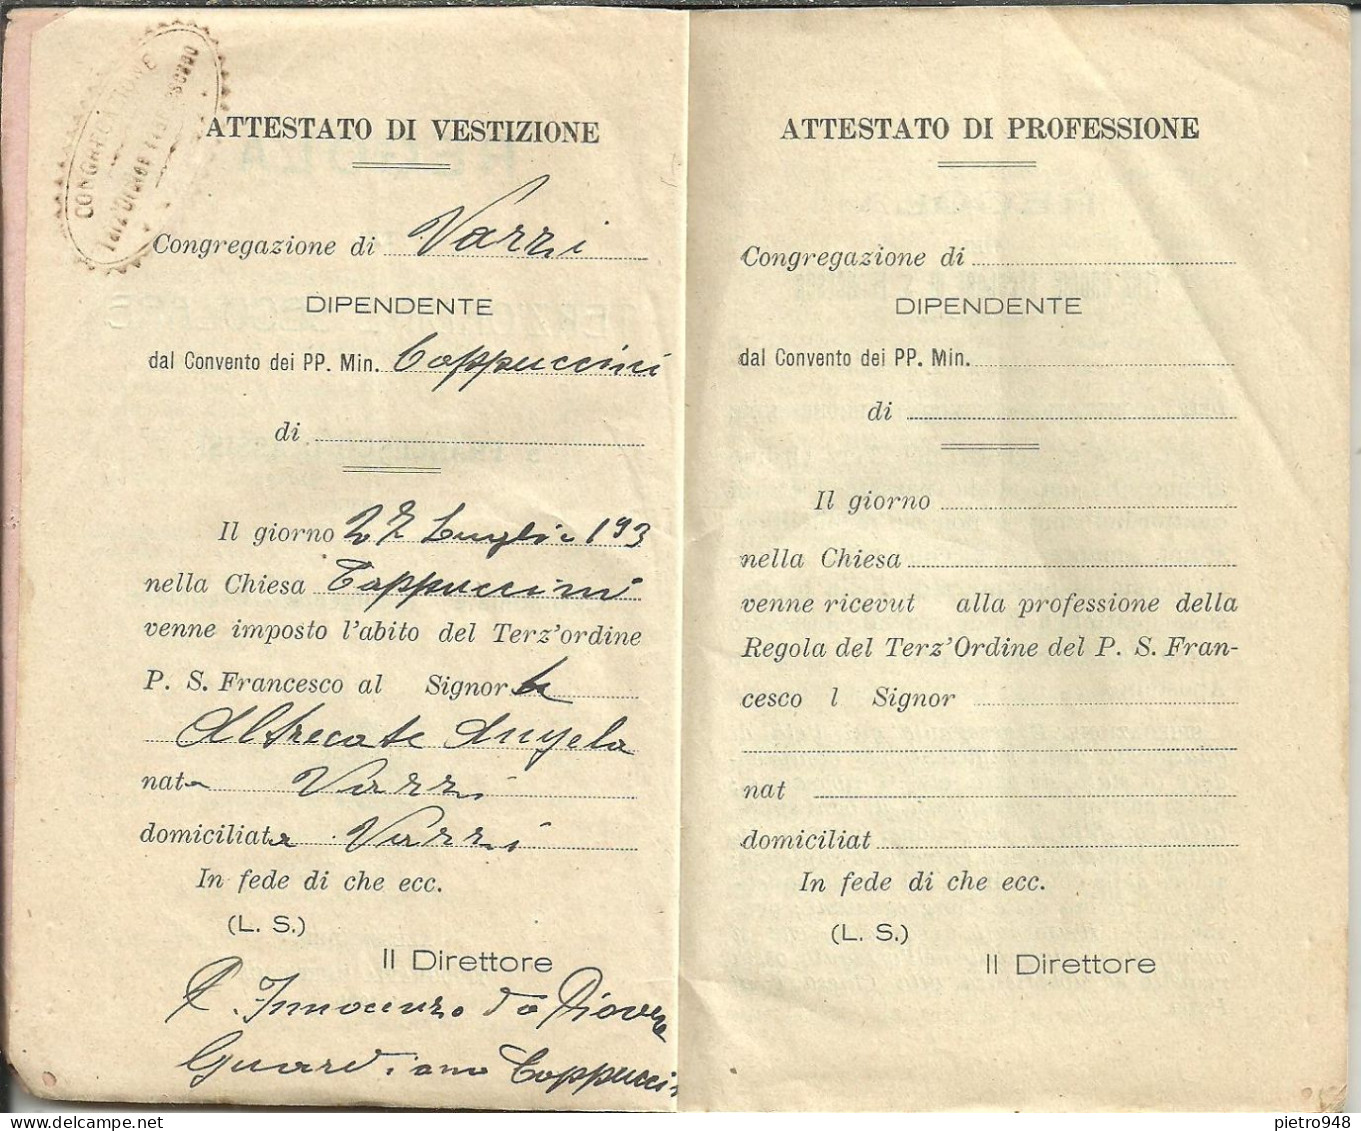 CONGREGAZIONE
ATTESTATO DI VESTIZIONE
Congregazione di Varzi
DIPENDENTE
dal Convento dei PP. Min. Cappuccini
di
Il giorno 27 Luglio 193
nella Chiesa Cappuccini
venne imposto l'abito del Terz'ordine
P. S. Francesco al Signor
Altrecate Angela
nata Varzi
domiciliata Varzi
In fede di che ecc.
(L. S.)
Il Direttore
P. Innocenzo da Piovera
Guardiano Cappuccin
ATTESTATO DI PROFESSIONE
Congregazione di
DIPENDENTE
dal Convento dei PP. Min.
di
Il giorno
nella Chiesa
venne ricevut alla professione della
Regola del Terz'Ordine del P. S. Fran-
cesco l Signor
nat
domiciliat
In fede di che ecc.
(L. S.)
Il Direttore
pietro948